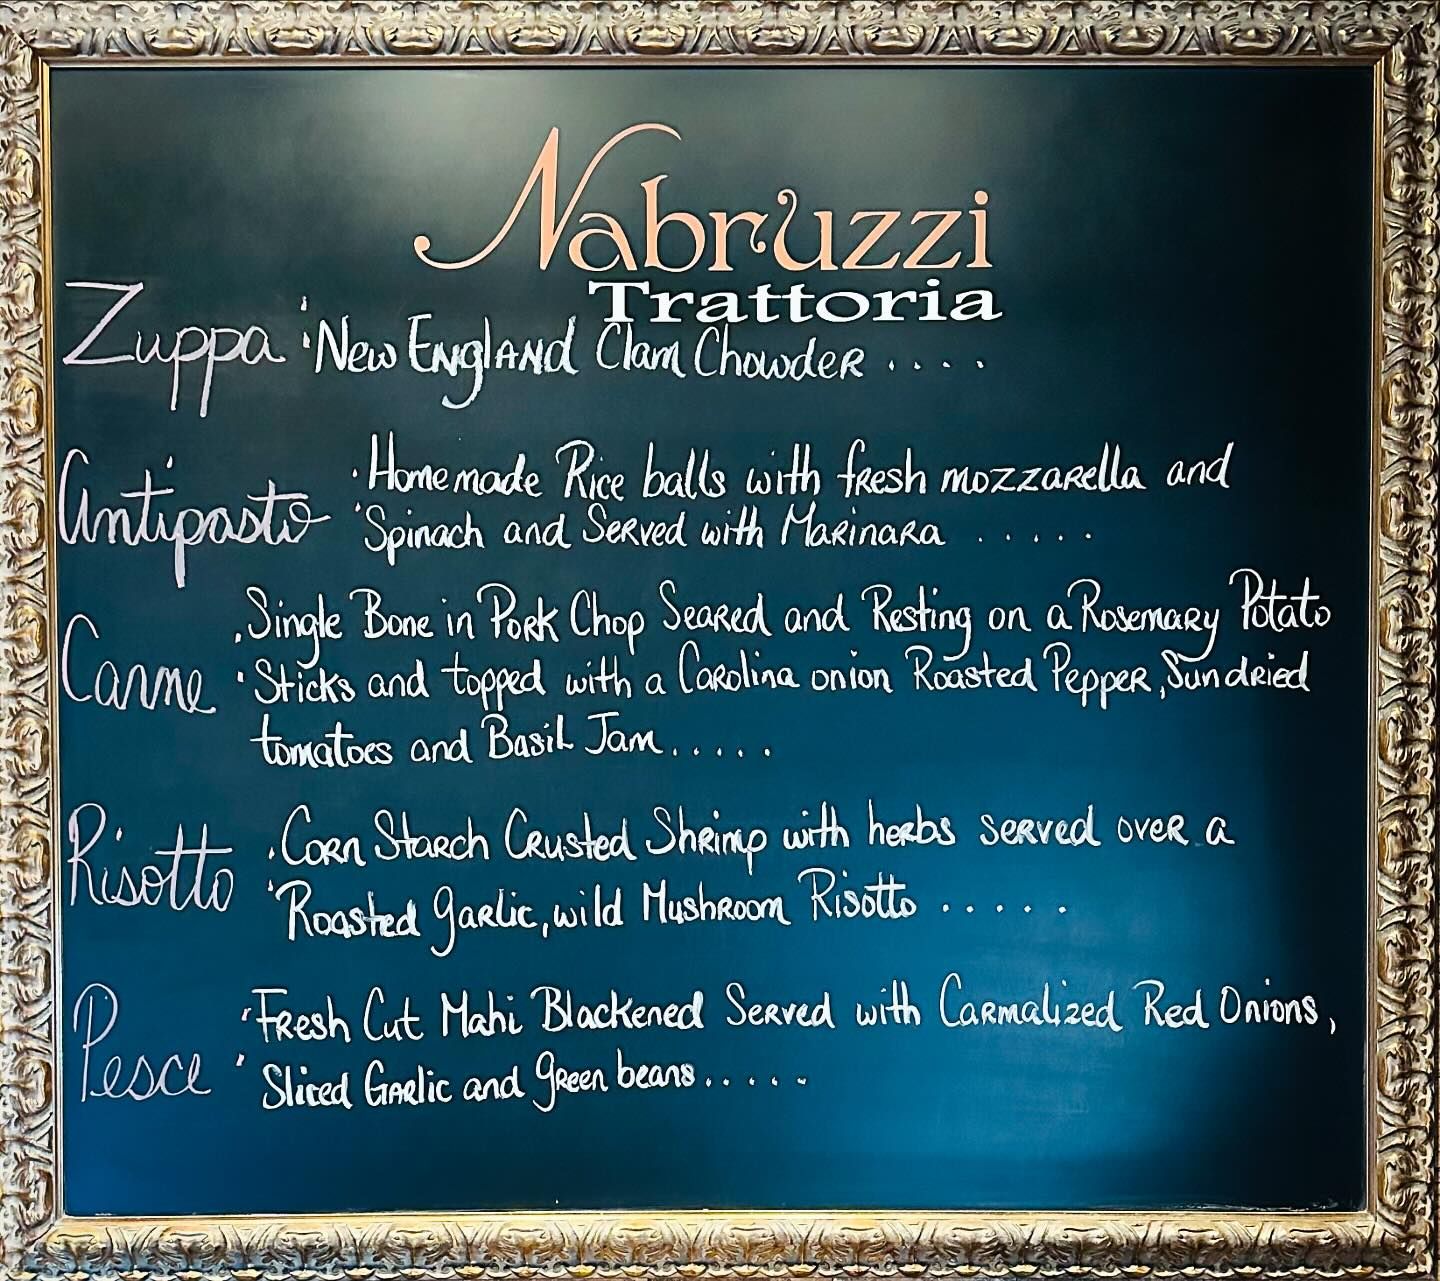 Nabruzzi
Trattoria
Zuppa New England Clam Chowder ....
Antipasto . Homemade Rice balls with fresh mozzarella and
Spinach and Served with Marinara .....
Carne . Single Bone in Pork Chop Seared and Resting on a Rosemary Potato
Sticks and topped with a Carolina onion Roasted Pepper, Sundried
tomatoes and Basil Jam.....
Risotto . Corn Starch Crusted Shrimp with herbs served over a
Roasted garlic, wild Mushroom Risotto .....
Pesce Fresh Cut Mahi Blackened Served with Carmalized Red Onions,
Sliced Garlic and green beans.....